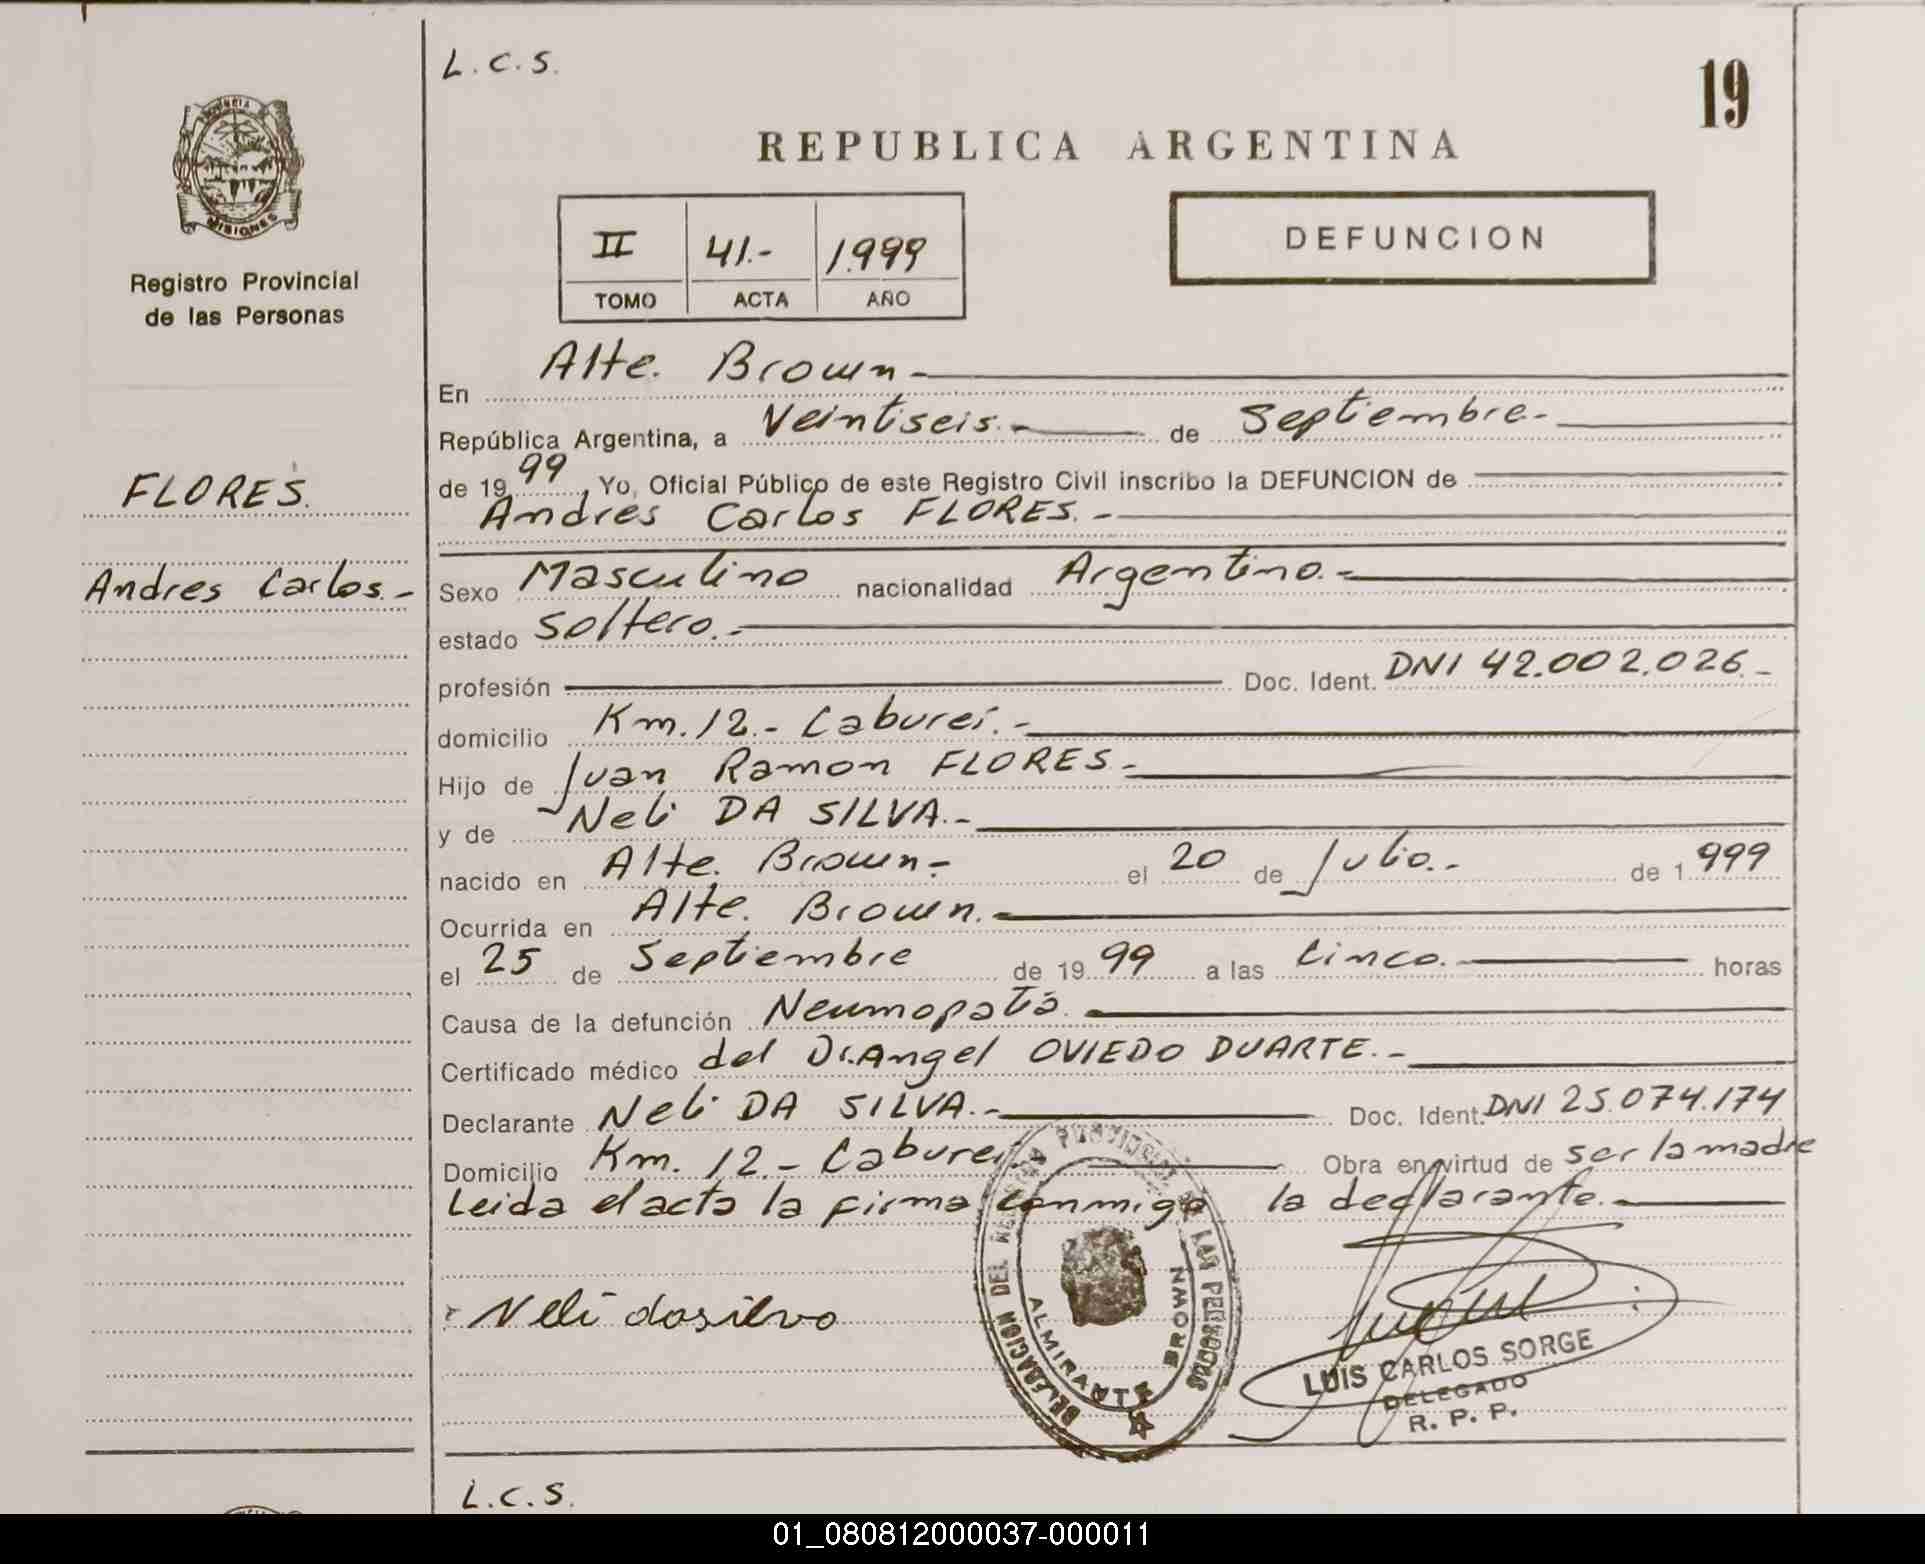 L.C.S.
19
PROVINCIA
MISIONES
Registro Provincial
de las Personas
REPUBLICA ARGENTINA
II 41.- 1.999
TOMO ACTA AÑO
DEFUNCION
FLORES.
Andres Carlos.-
En Alte. Brown.-
República Argentina, a Veintiseis.- de Septiembre.-
de 1999, Yo, Oficial Público de este Registro Civil inscribo la DEFUNCION de
Andres Carlos FLORES.-
Sexo Masculino nacionalidad Argentino.-
estado Soltero.-
profesión Doc. Ident. DNI 42.002.026.-
domicilio Km. 12.- Cabureí.-
Hijo de Juan Ramon FLORES.-
y de Neli DA SILVA.-
nacido en Alte. Brown.- el 20 de Julio.- de 1999
Ocurrida en Alte. Brown.
el 25 de Septiembre de 1999 a las Cinco. horas
Causa de la defunción Neumopatía.
Certificado médico del Dr. Angel OVIEDO DUARTE.-
Declarante Neli DA SILVA.- Doc. Ident. DNI 25.074.174
Domicilio Km. 12.- Cabureí.- Obra en virtud de ser la madre
Leida el acta la firma conmigo la declarante.
Neli dasilva
DELEGACION DEL REGISTRO PROVINCIAL DE LAS PERSONAS
ALMIRANTE BROWN
LUIS CARLOS SORGE
DELEGADO
R. P. P.
L.C.S.
01_080812000037-000011